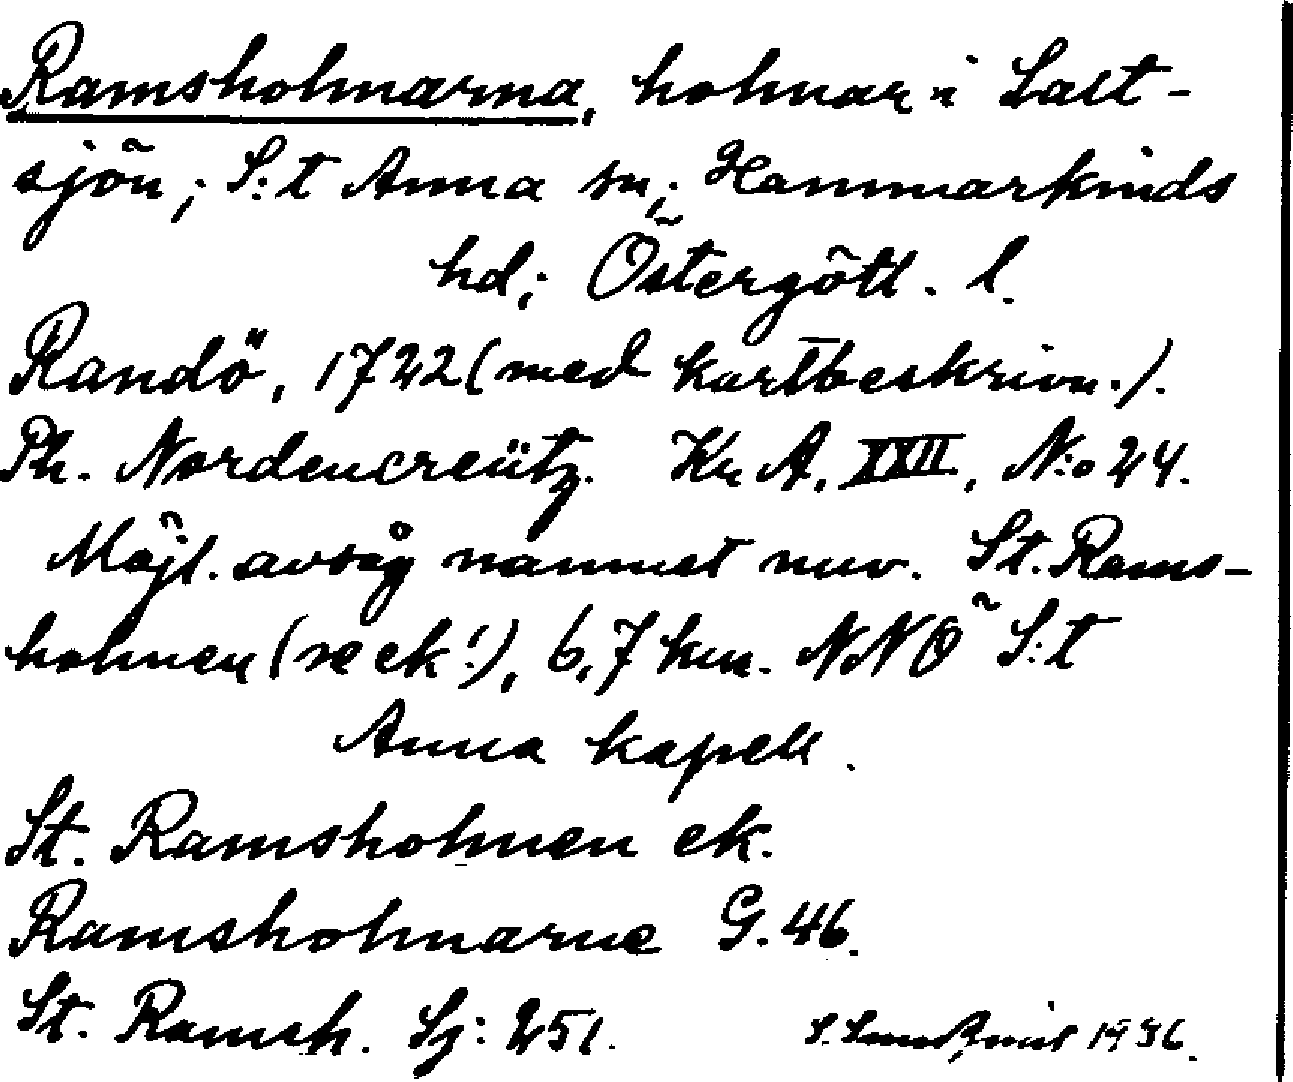 Ramsholmarna, holmar i Salt-
sjön; S:t Anna sn; Hammarkinds
hd; Östergötl. l.
Randö, 1722 (med kartbeskrivn.).
Ph. Nordencreütz. Kr. A. XXII, N:o 24.
Möjl. avsåg namnet nuv. St. Rams-
holmen (se ek!), 6,7 km. NNÖ S:t
Anna kapell.
St. Ramsholmen ek.
Ramsholmarne G. 46.
St. Ramsh. Sj: 251.
S. Sundqvist 1936.